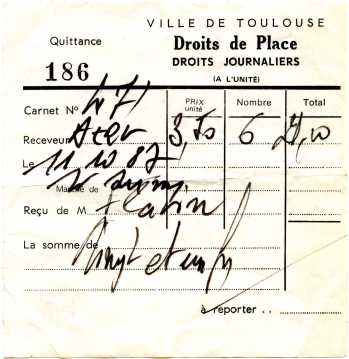 VILLE DE TOULOUSE
Quittance
Droits de Place
DROITS JOURNALIERS
186
(A L'UNITÉ)
Carnet Nº 471
PRIX unité Nombre Total
Receveur 3,50 6 21,00
Le 11 10 87
Marché de
Reçu de M
La somme de Vingt et un f
à reporter . .